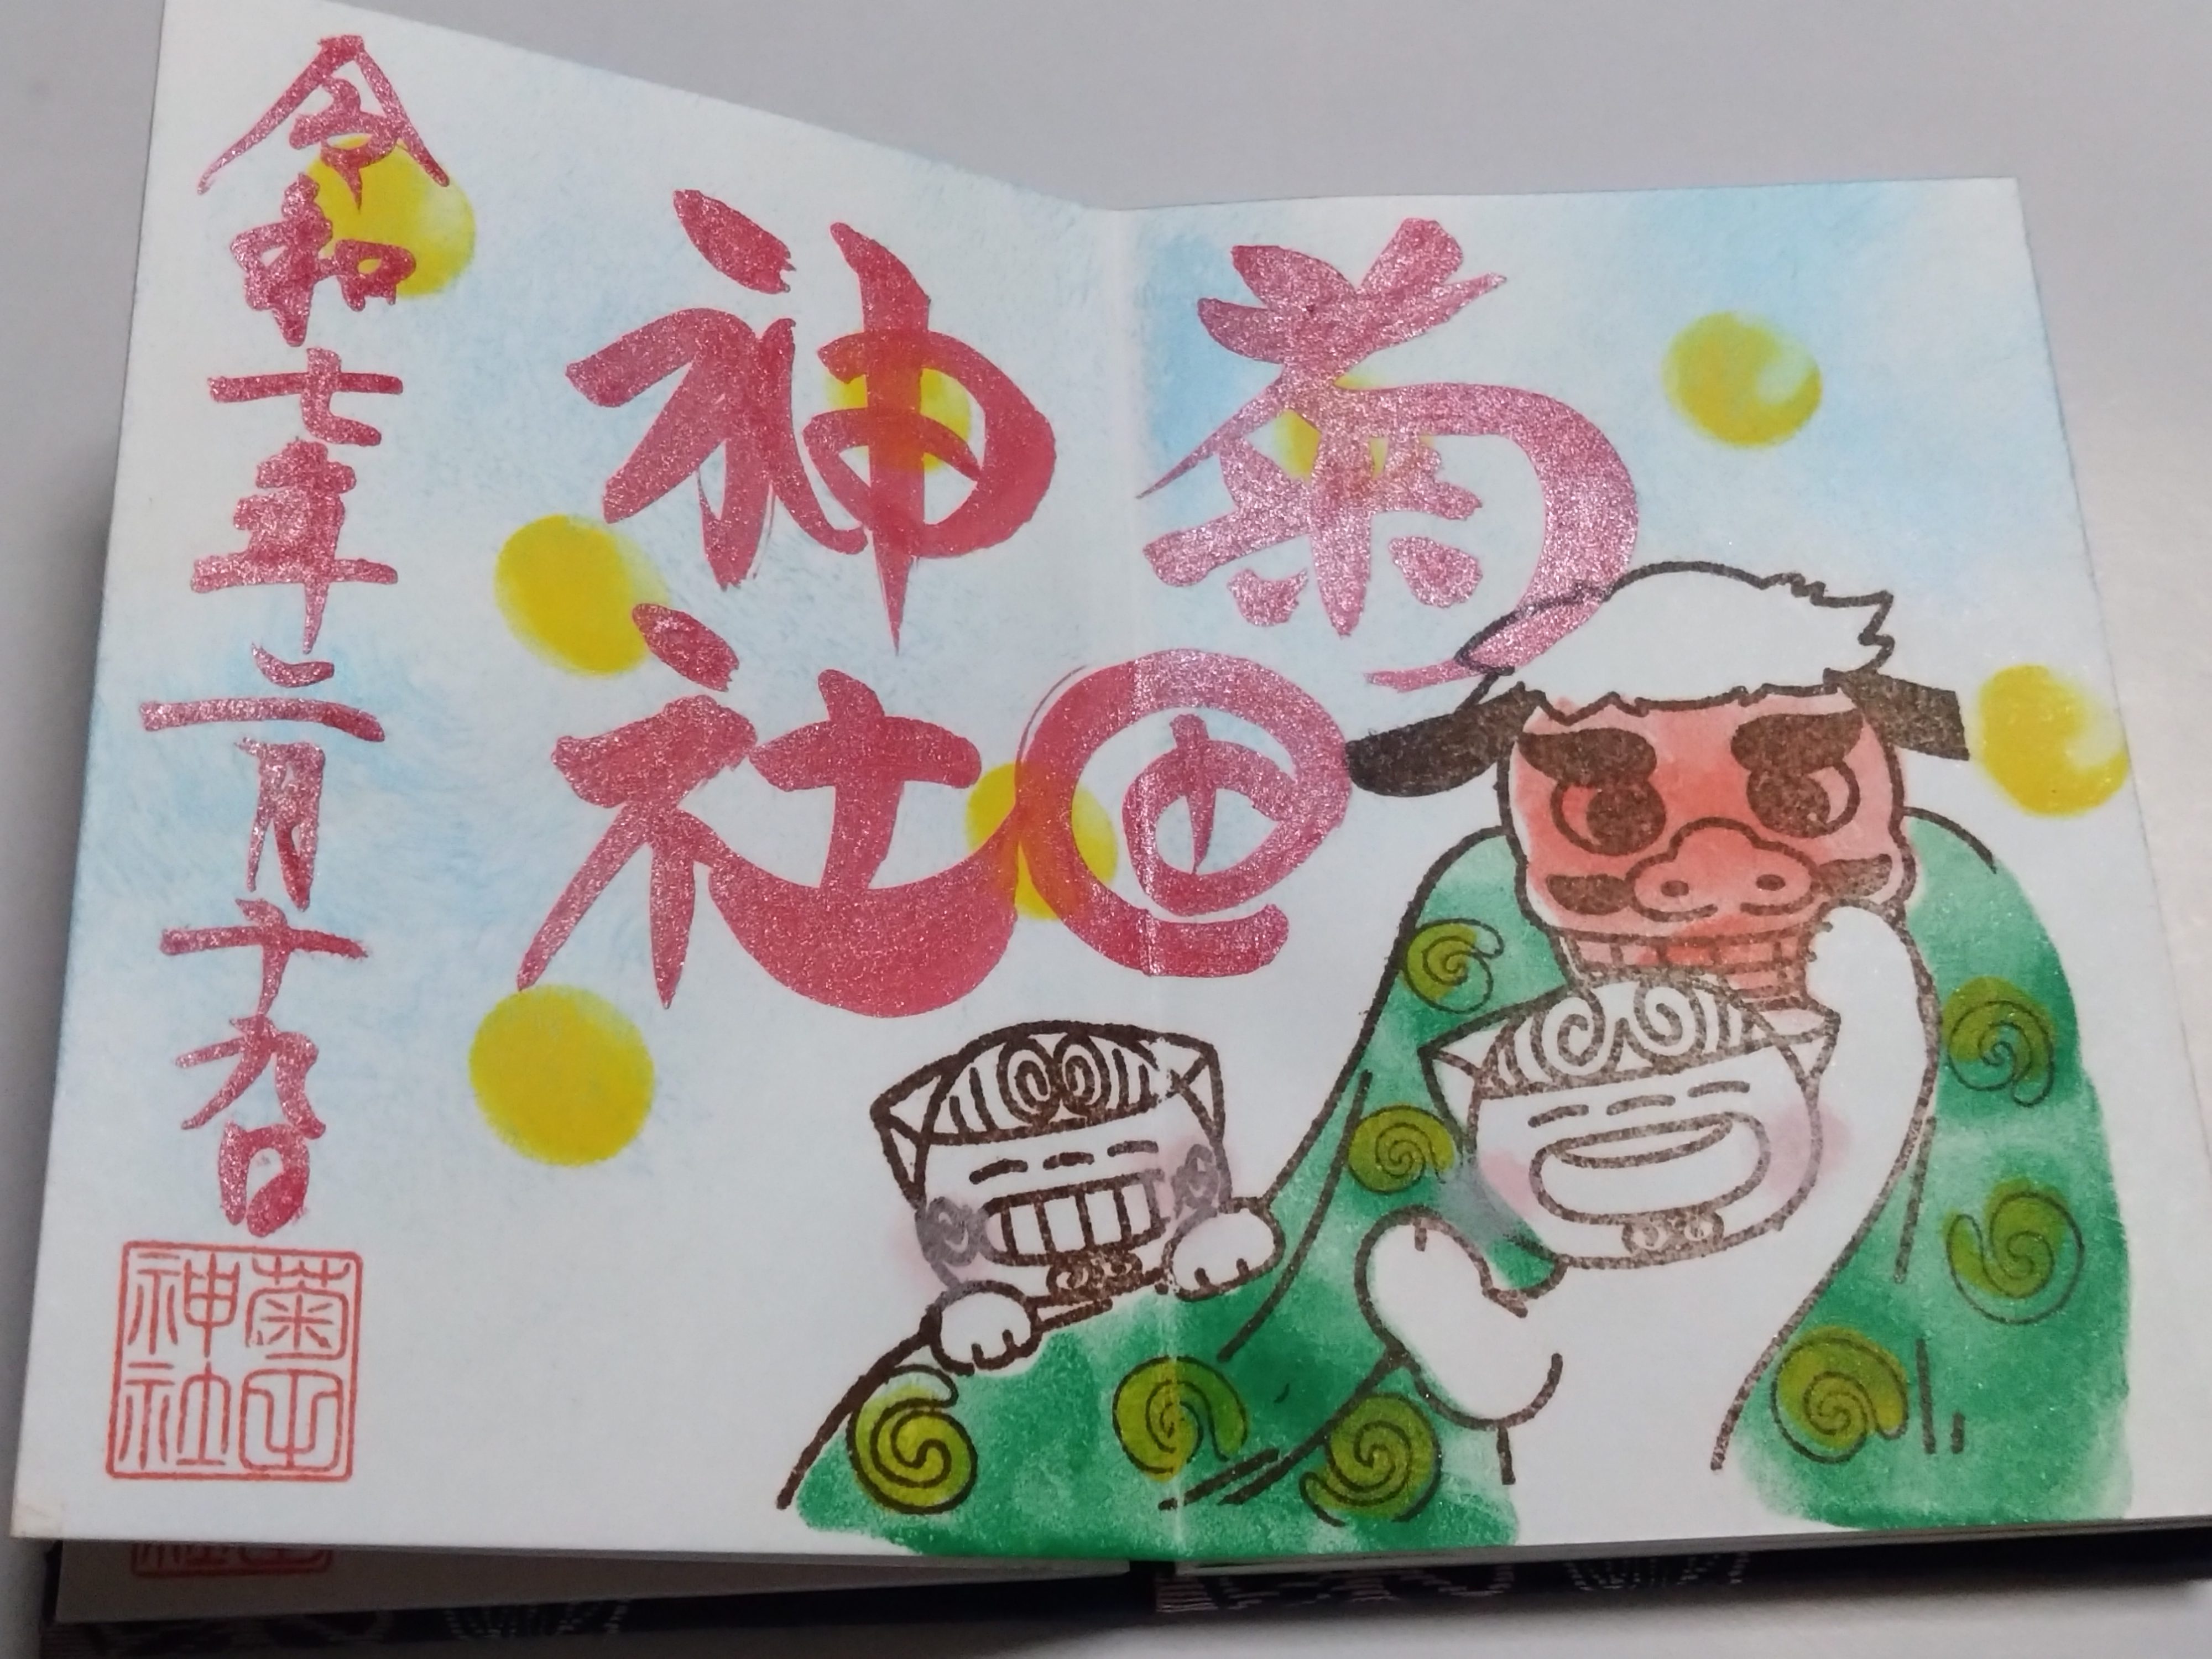 菊田
神社
令和七年二月十九日
菊田
神社